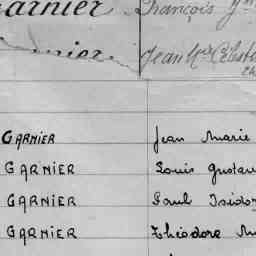 Garnier François
Jean
GARNIER Jean Marie
GARNIER Louis Gustav
GARNIER Paul Isidor
GARNIER Théodore